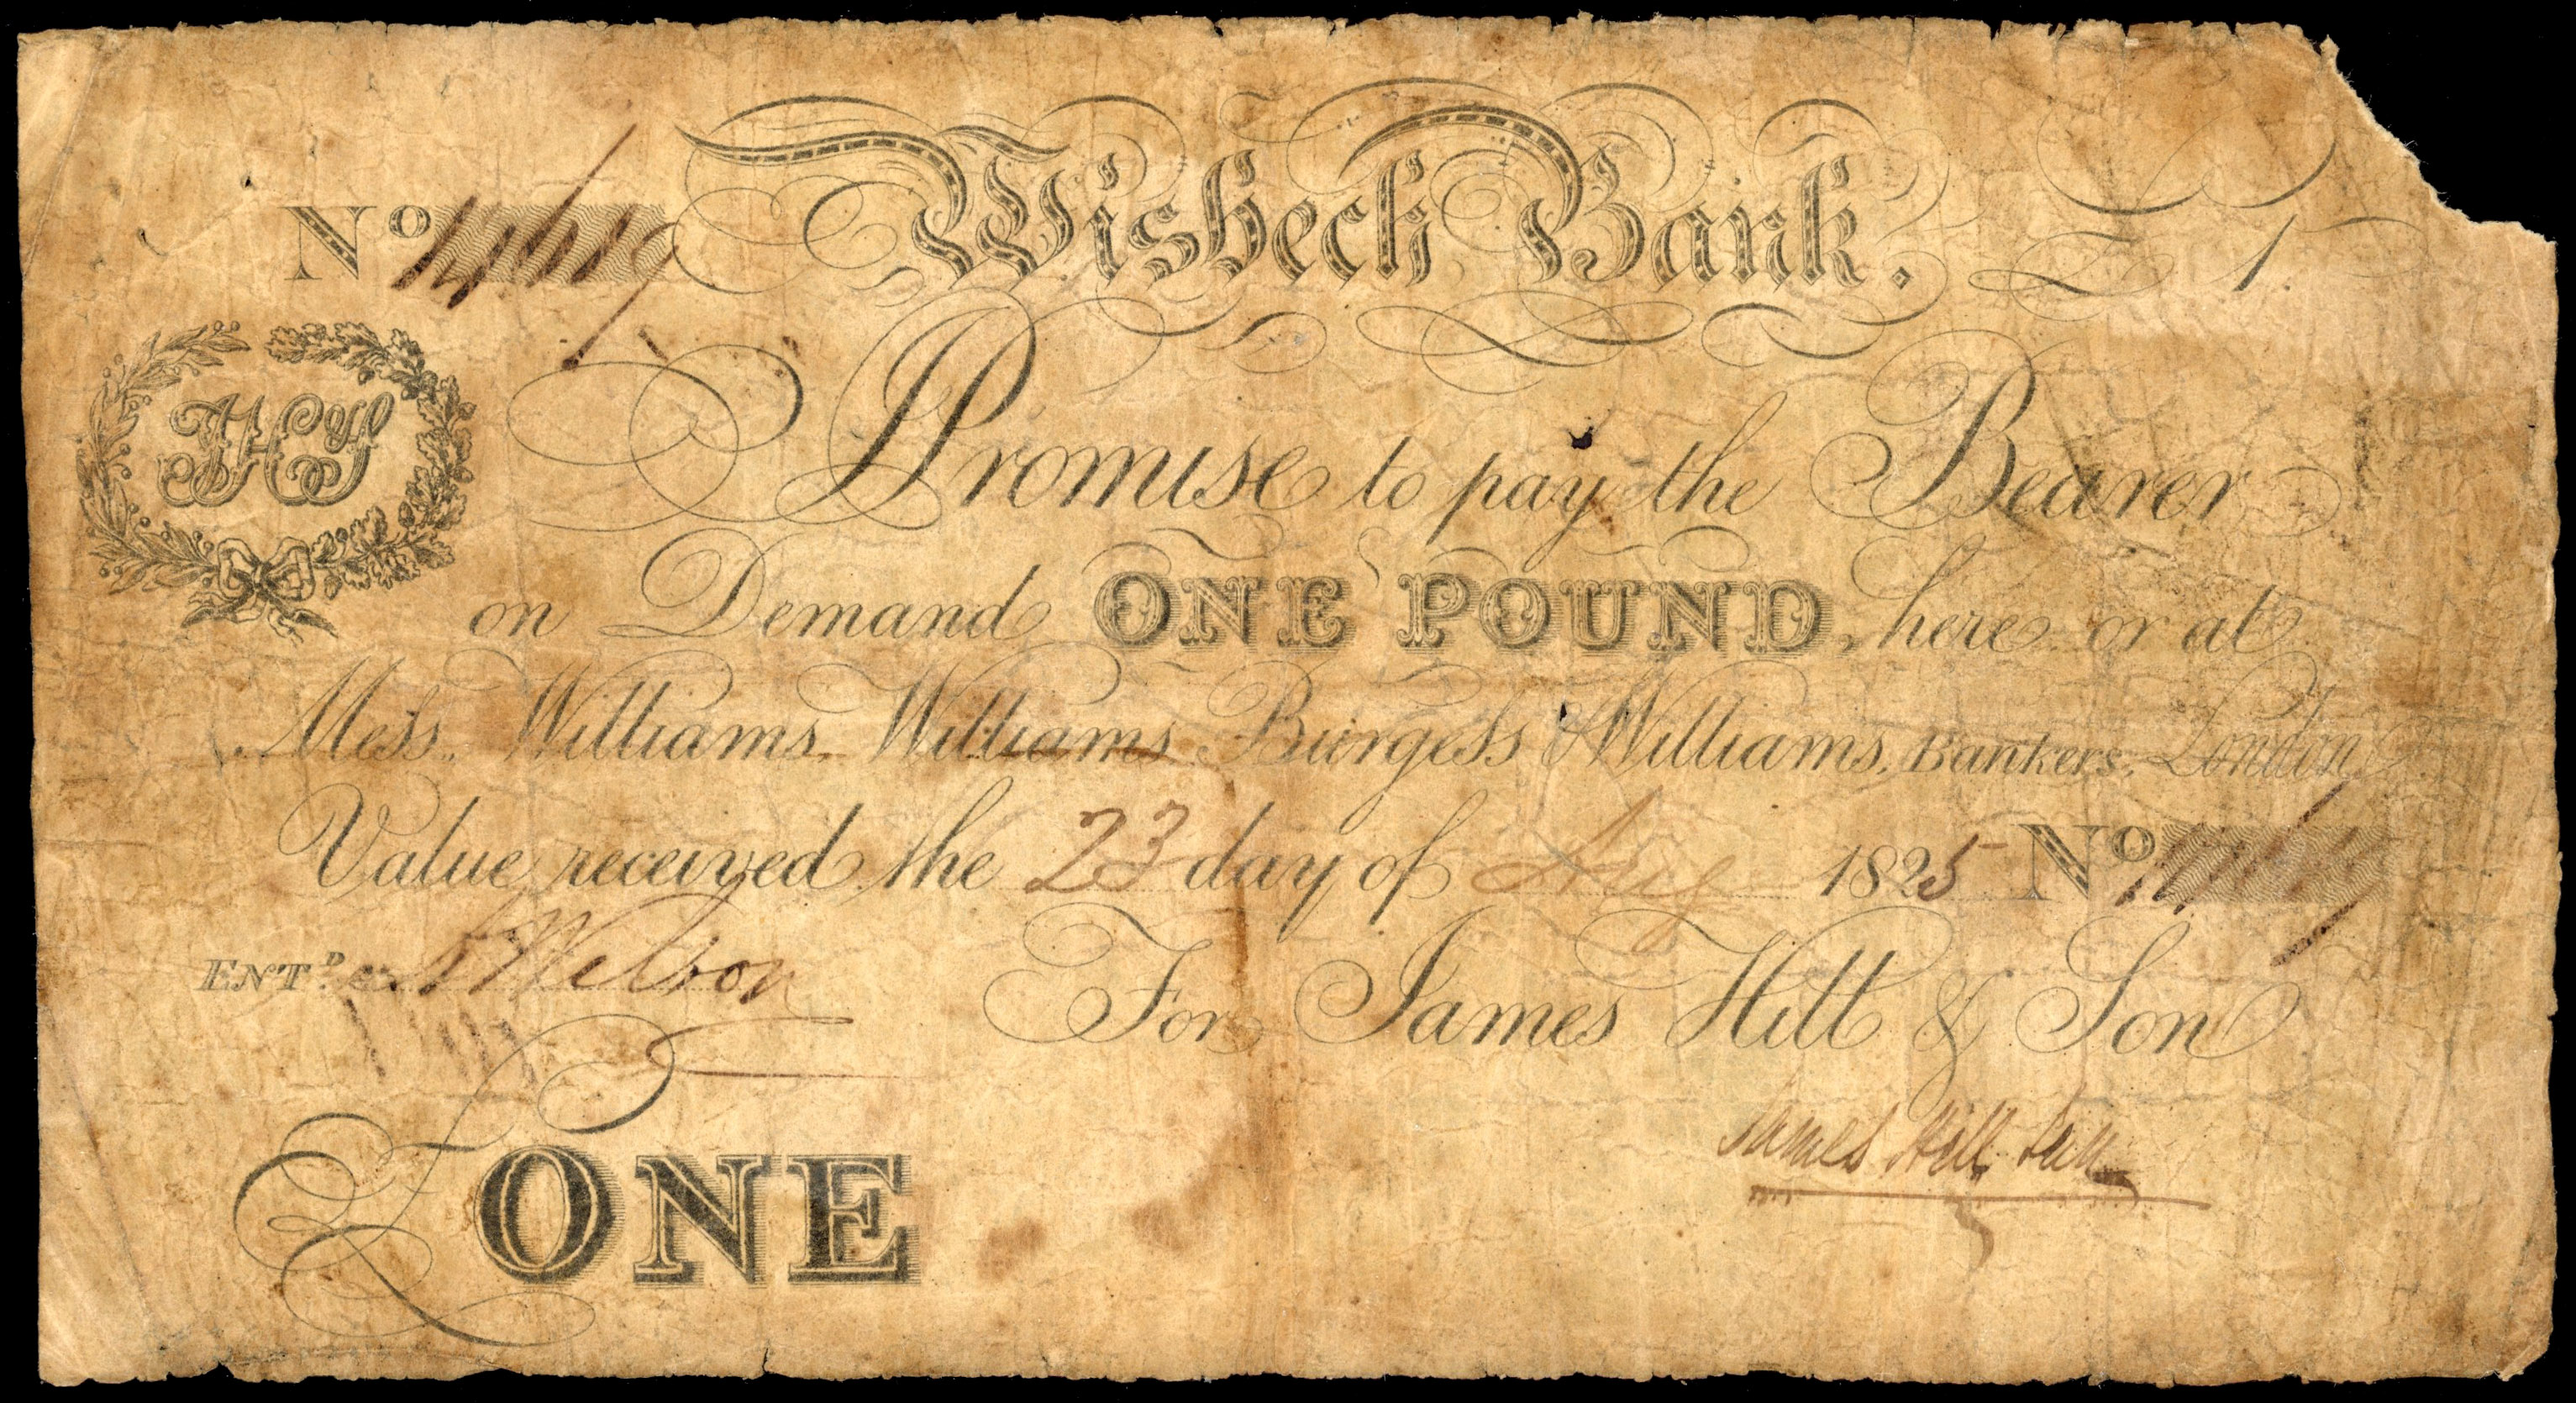 No 14619 Wisbech Bank. £1.
JHS
Promise to pay the Bearer
on Demand ONE POUND, here or at
Mess.. Williams, Williams, Burgess & Williams, Bankers, London
Value received the 23 day of Aug 1825 No 14619
ENT.D Wilson
For James Hill & Son
James Hill Jun
£ONE